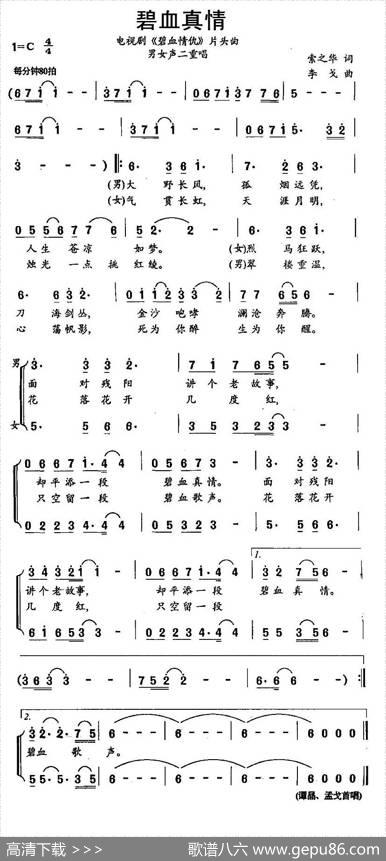 碧血真情
1=C 4/4
电视剧《碧血情仇》片头曲
男女声二重唱
索之华 词
李 戈 曲
每分钟80拍
(6 7 1 1 - | 3 7 1 1 - | 0 6 7 1 6 3 7 7 6
1 2 1 1 - | 3 2 1 1 - | 0 6 7 1 5· 3 2
3 - - -) ‖: 6· 3 6 1· | 7· 2 6 3·
(男)大 野长风, 孤 烟远凭,
(女)气 贯长虹, 天 涯月明,
0 5 5 5 6 7 7 6 | 5 2 2 - | 6· 3 6 1·
人生 苍凉 如梦。 (女)烈 马狂跃,
烛光 一点 挑红绫。 (男)翠 楼重温,
6· 6 3 2· | 0 1 1 2 2 3 3 | 7 7 6 5 6
刀 海剑丛, 金沙 咆哮 澜沧 奔 腾。
心 荡帆影, 死为 你醉 生为 你 醒。
男 3· 3 3 2· | 7 1 7 6 5 5
面 对残阳 讲个老故事,
花 落花开 几 度红,
女 5· 5 6 6· | 3 5 3 2 3 3
0 6 6 7 1· 4 4 | 0 5 6 7 3 - | 3· 3 3 2·
却平添一段 碧血真情。 面 对残阳
只空留一段 碧血歌声。 花 落花开
0 2 2 3 4· 4 4 | 0 2 2 3 5 - | 5· 5 6 6·
3 4 3 2 1 1 - | 0 6 6 7 1· 4 4 | 3 2 7 5 6 -
1.
讲个老故事, 却平添一段 碧血真 情。
几 度红, 只空留一段
6 1 6 5 3 3 - | 0 2 2 3 4· 4 4 | 5 6 3 3 6 -
(3 6 3 3 - - | 7 5 2 2 - - ) :‖
2.
3 2· 2· 7 5 | 6 - - - | 6 - - - | 6 0 0 0 ‖
碧血 歌 声。
5 5· 5· 3 5 | 6 - - - | 6 - - - | 6 0 0 0 ‖
(谭晶、孟戈首唱)
高清下载 >>> 歌谱八六 www.gepu86.com